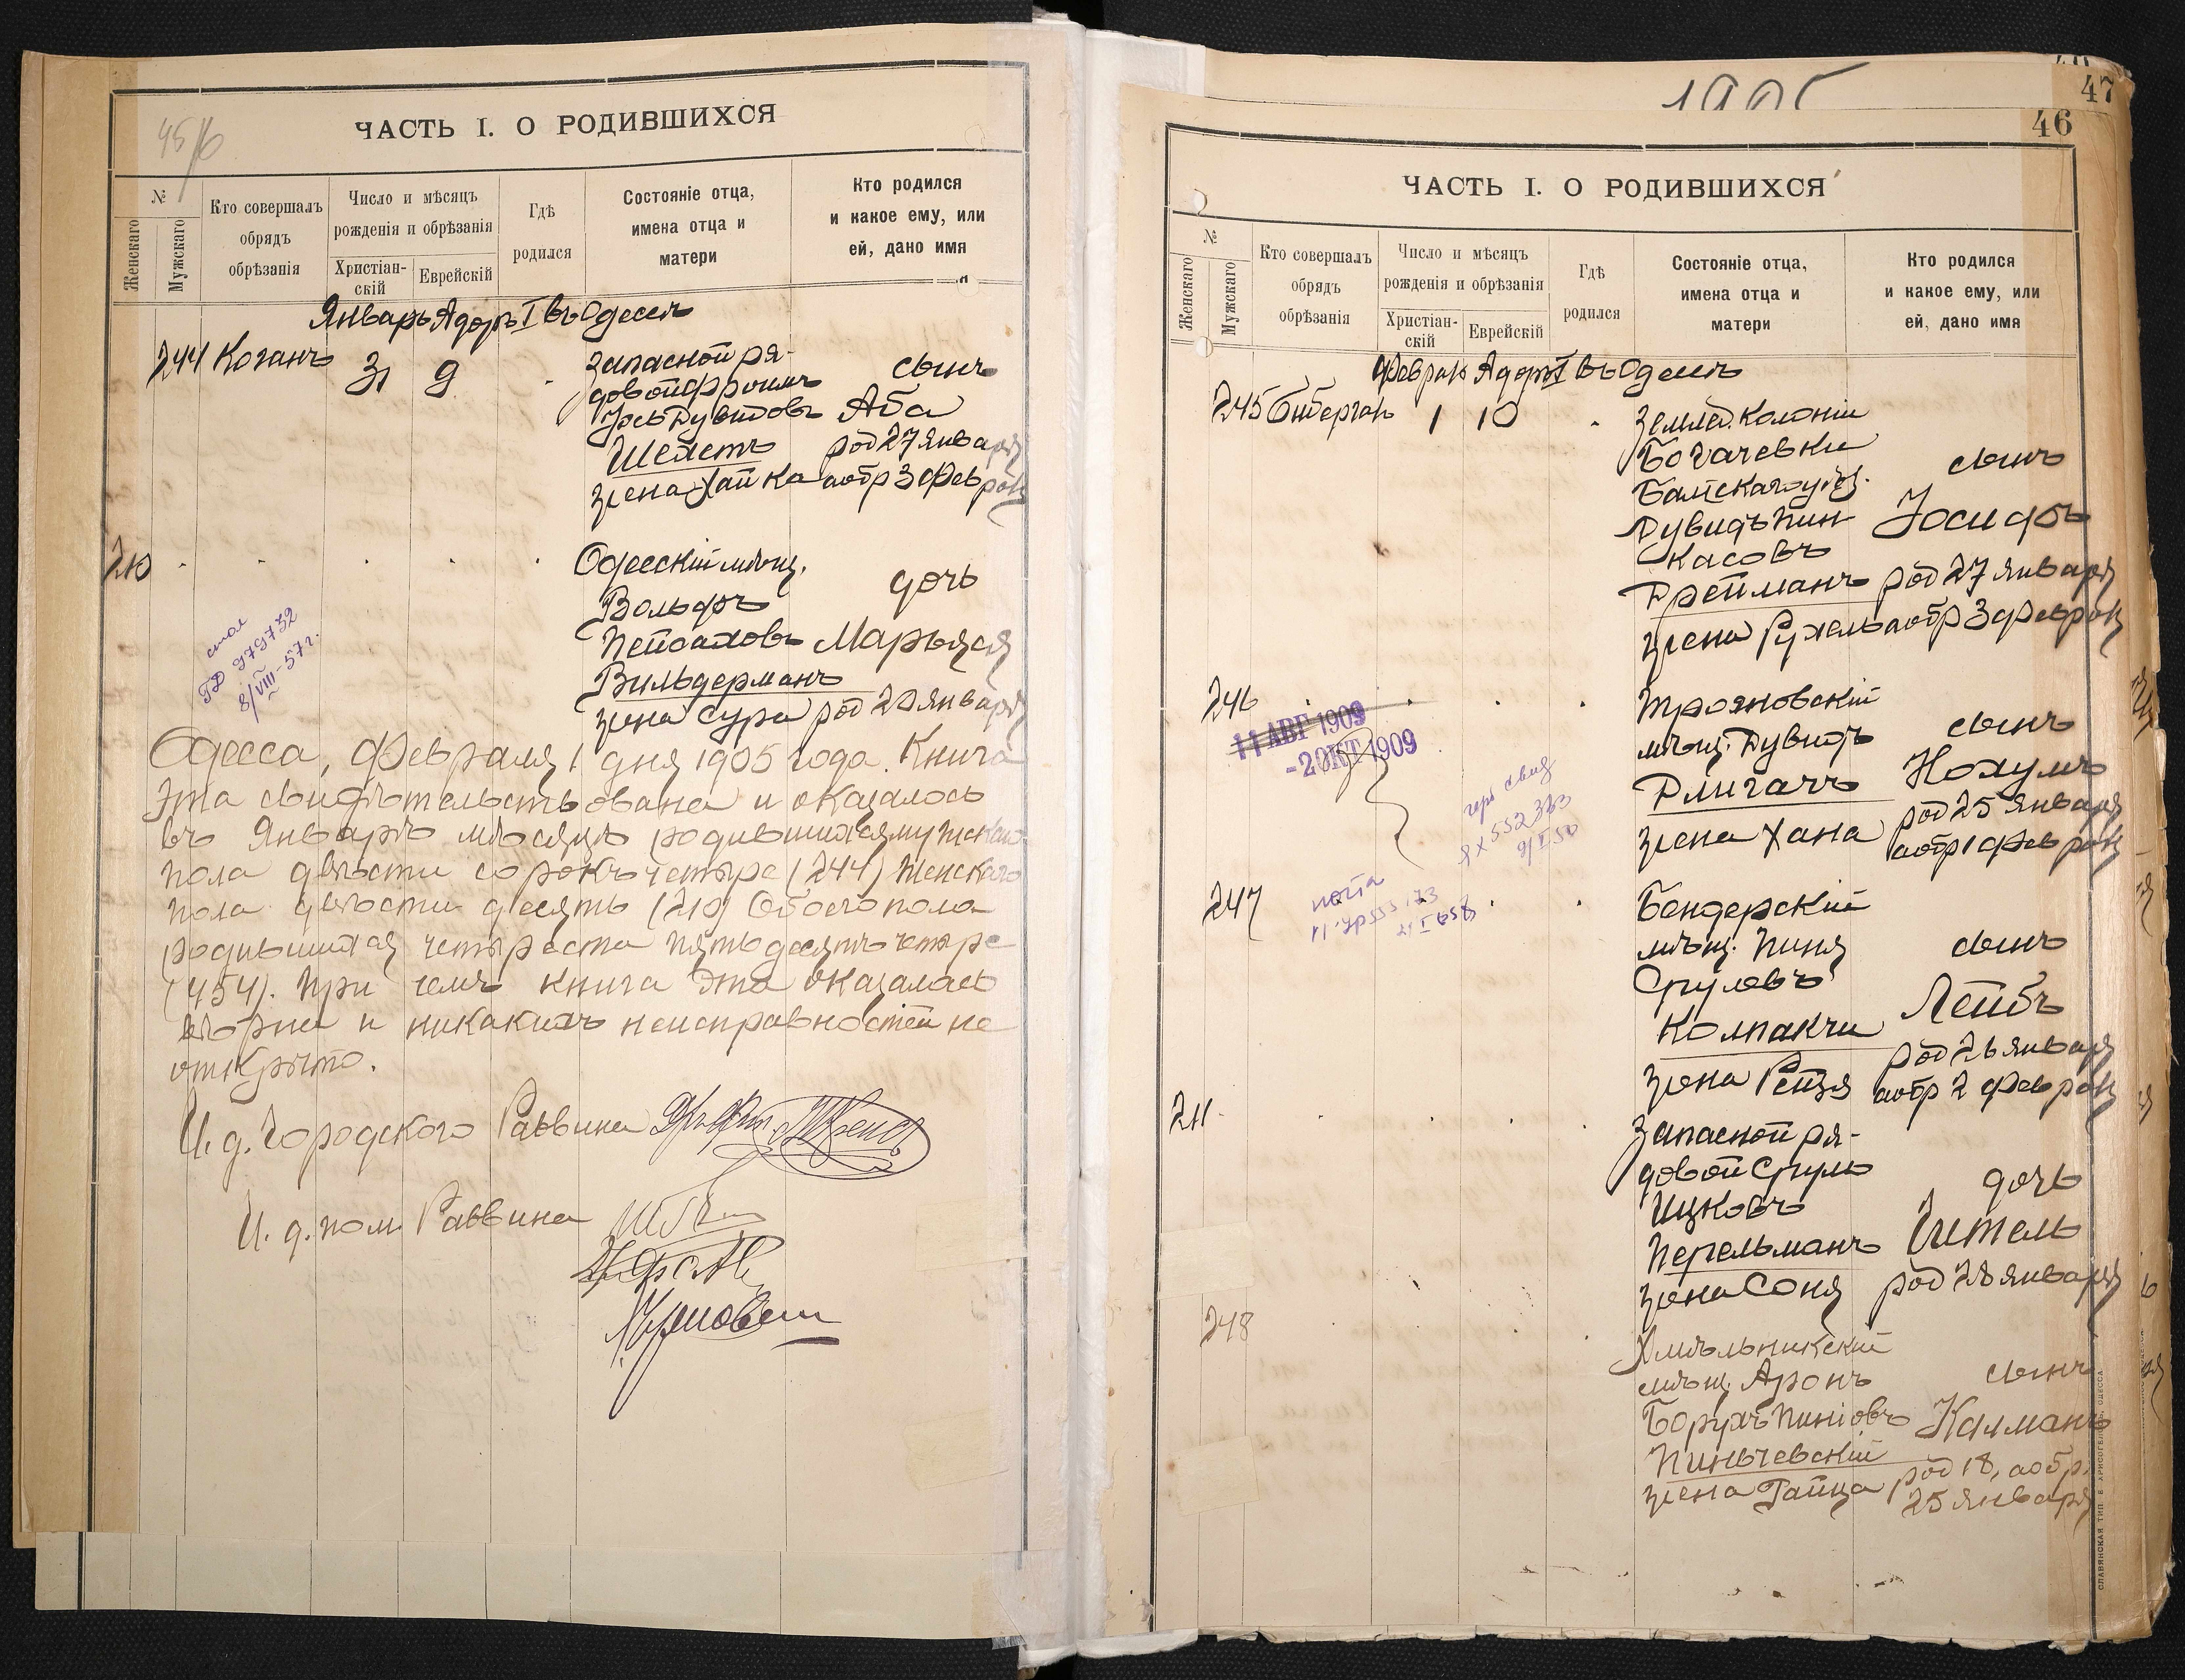 45/6
ЧАСТЬ I. О РОДИВШИХСЯ
№
Женскаго
Мужскаго
Кто совершалъ
обрядъ
обрѣзанія
Число и мѣсяцъ
рожденія и обрѣзанія
Христіан-
скій
Еврейскій
Гдѣ
родился
Состояніе отца,
имена отца и
матери
Кто родился
и какое ему, или
ей, дано имя
Январь Адоръ I въ Одессѣ
244 Коганъ 31 9
Запасной ря-
довой Фроимъ
Дувидовъ
Шейетъ
жена Хайка
сынъ
Аба
род 27 января
а обр 3 февраля
210
Одесскій мѣщ.
Вольфъ
Пейсаховъ
Вильдерманъ
жена Сура
дочь
Марьяся
род 20 января
ГД 979732
8/VIII-57г.
Одесса, Февраля 1 дня 1905 года. Книга
эта свидѣтельствована и оказалось
въ Январѣ мѣсяцѣ родившихся мужскаго
пола двѣсти сорокъ четыре (244) Женскаго
пола двѣсти десять (210) Обоего пола
родившихся четыреста пятьдесятъ четыре
(454). При чемъ книга эта оказалась
вѣрна и никакихъ неисправностей не
открыто.
И. д. Городского Раввина
И. д. пом. Раввина
1905
47
46
ЧАСТЬ I. О РОДИВШИХСЯ
№
Женскаго
Мужскаго
Кто совершалъ
обрядъ
обрѣзанія
Число и мѣсяцъ
рожденія и обрѣзанія
Христіан-
скій
Еврейскій
Гдѣ
родился
Состояніе отца,
имена отца и
матери
Кто родился
и какое ему, или
ей, дано имя
Февраль Адоръ I въ Одессѣ
245 1 10
Землед. Колоніи
Богачевки
Балтскаго уѣз.
Дувидъ Пин-
касовъ
Дрейманъ
жена Рухель
сынъ
Іосифъ
род 27 января
а обр 3 февраля
246
Трояновскій
мѣщ. Дувидъ
Длигачъ
жена Хана
сынъ
Нохумъ
род 25 января
а обр 1 февраля
11 АВГ 1909
-2 ОКТ 1909
247
Бендерскій
мѣщ. Пиня
Срулевъ
Колпакчи
жена Рейзя
сынъ
Лейбъ
род 26 января
а обр 2 февраля
211
Запасной ря-
довой Сруль
Ицковъ
Перельманъ
жена Соня
дочь
Гитель
род 28 января
248
Хмѣльникскій
мѣщ. Аронъ
Борухъ Пиніовъ
Пиньчевскій
жена Гайца
сынъ
Калманъ
род 18, а обр.
25 января